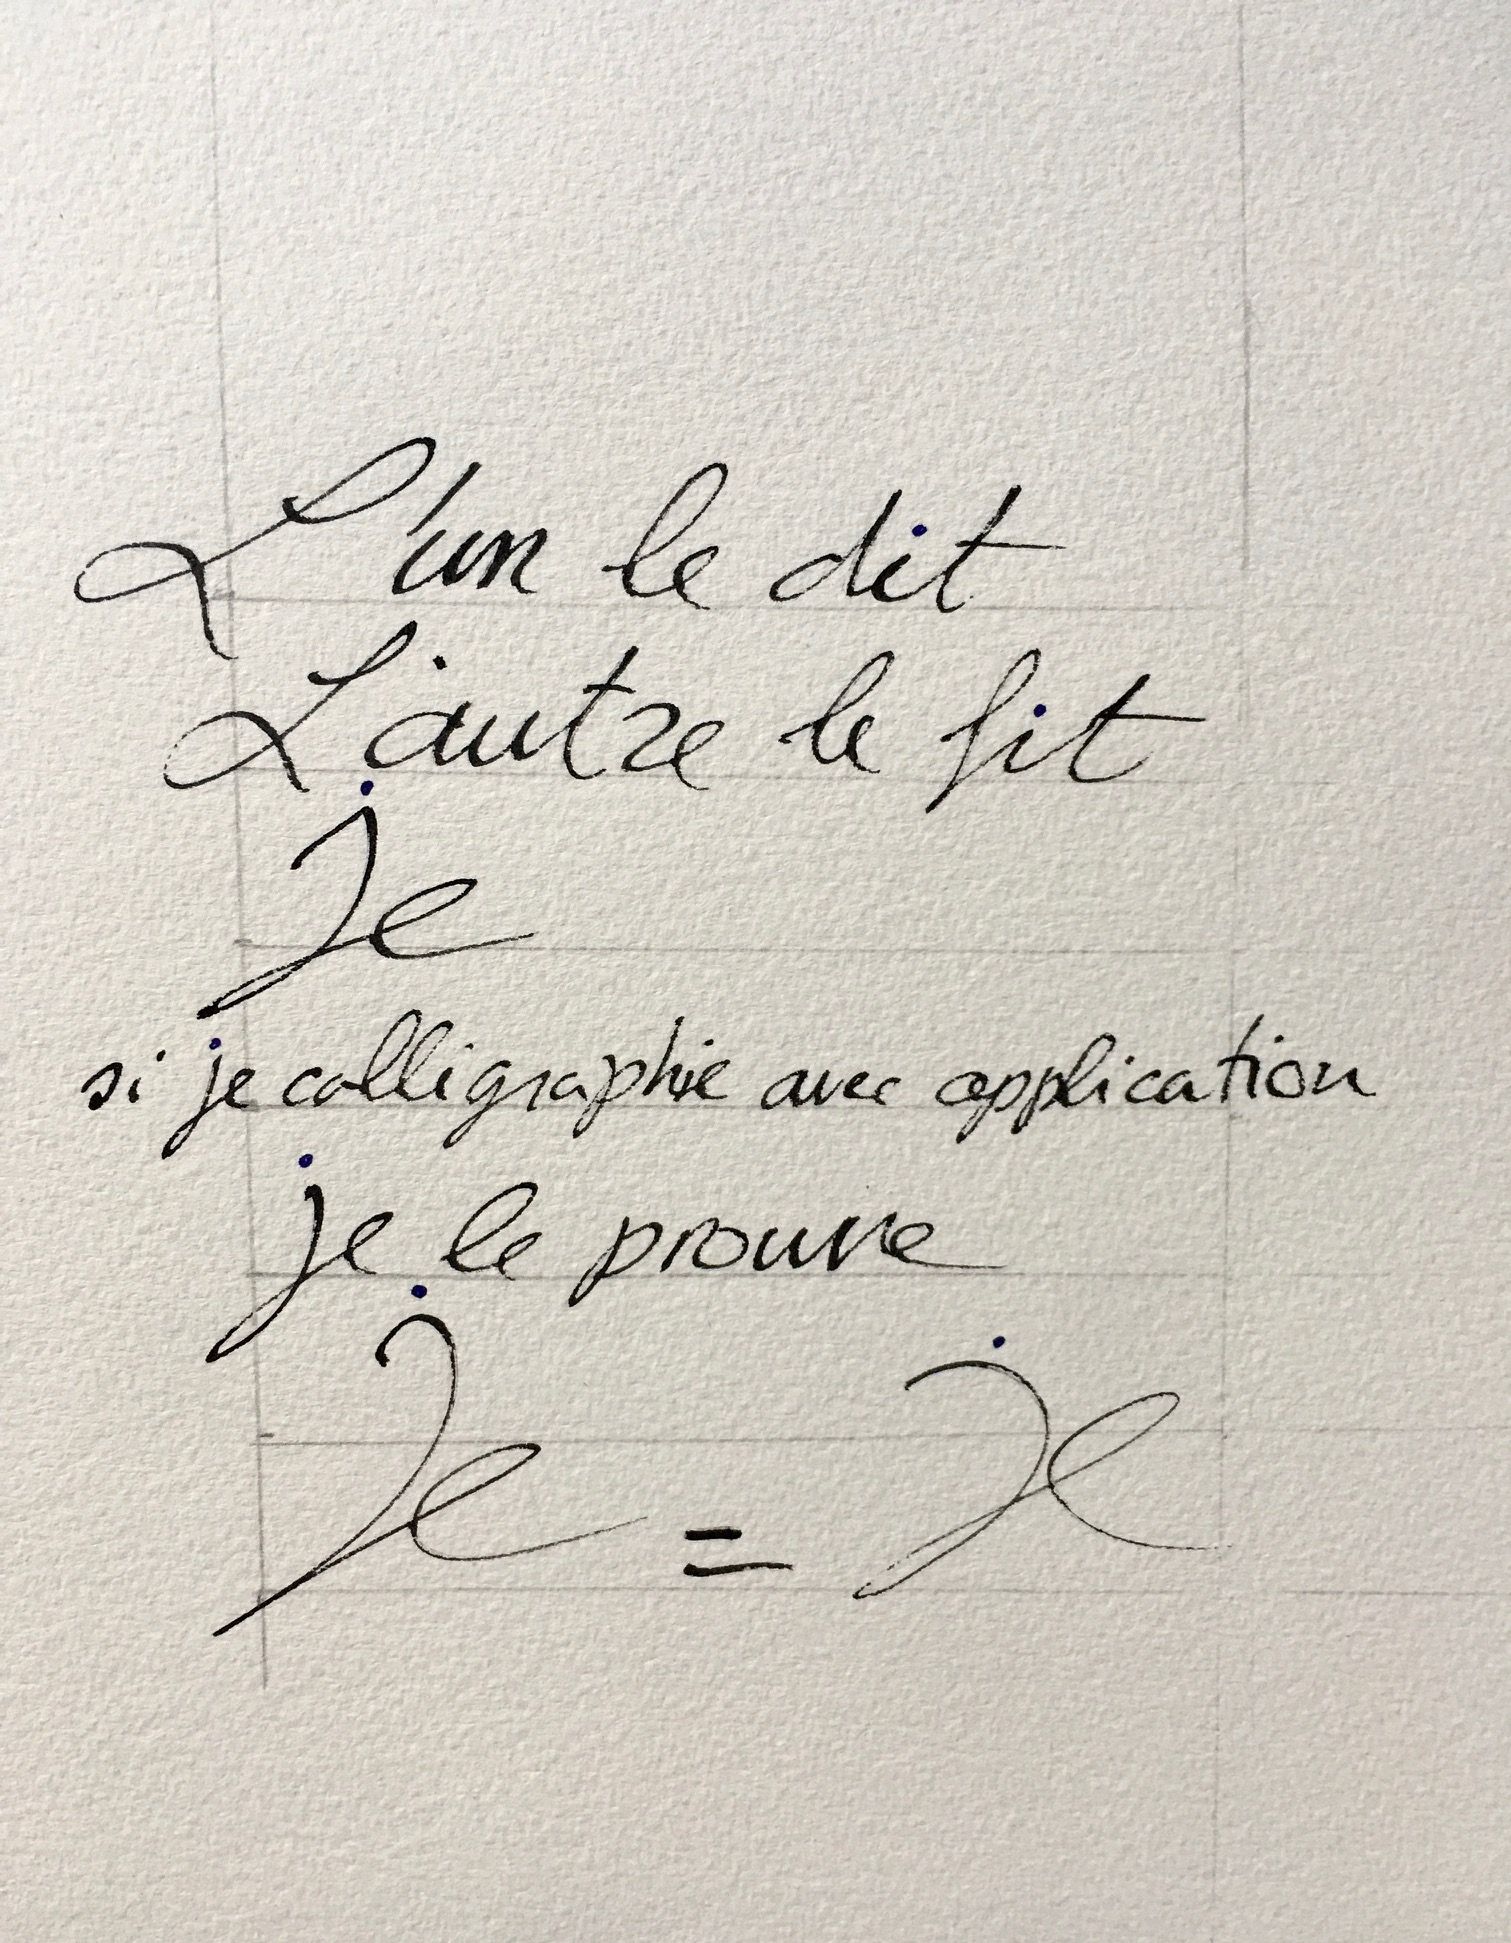 L'un le dit
L'autre le fit
Je
si je calligraphie avec application
je le prouve
Je = Je